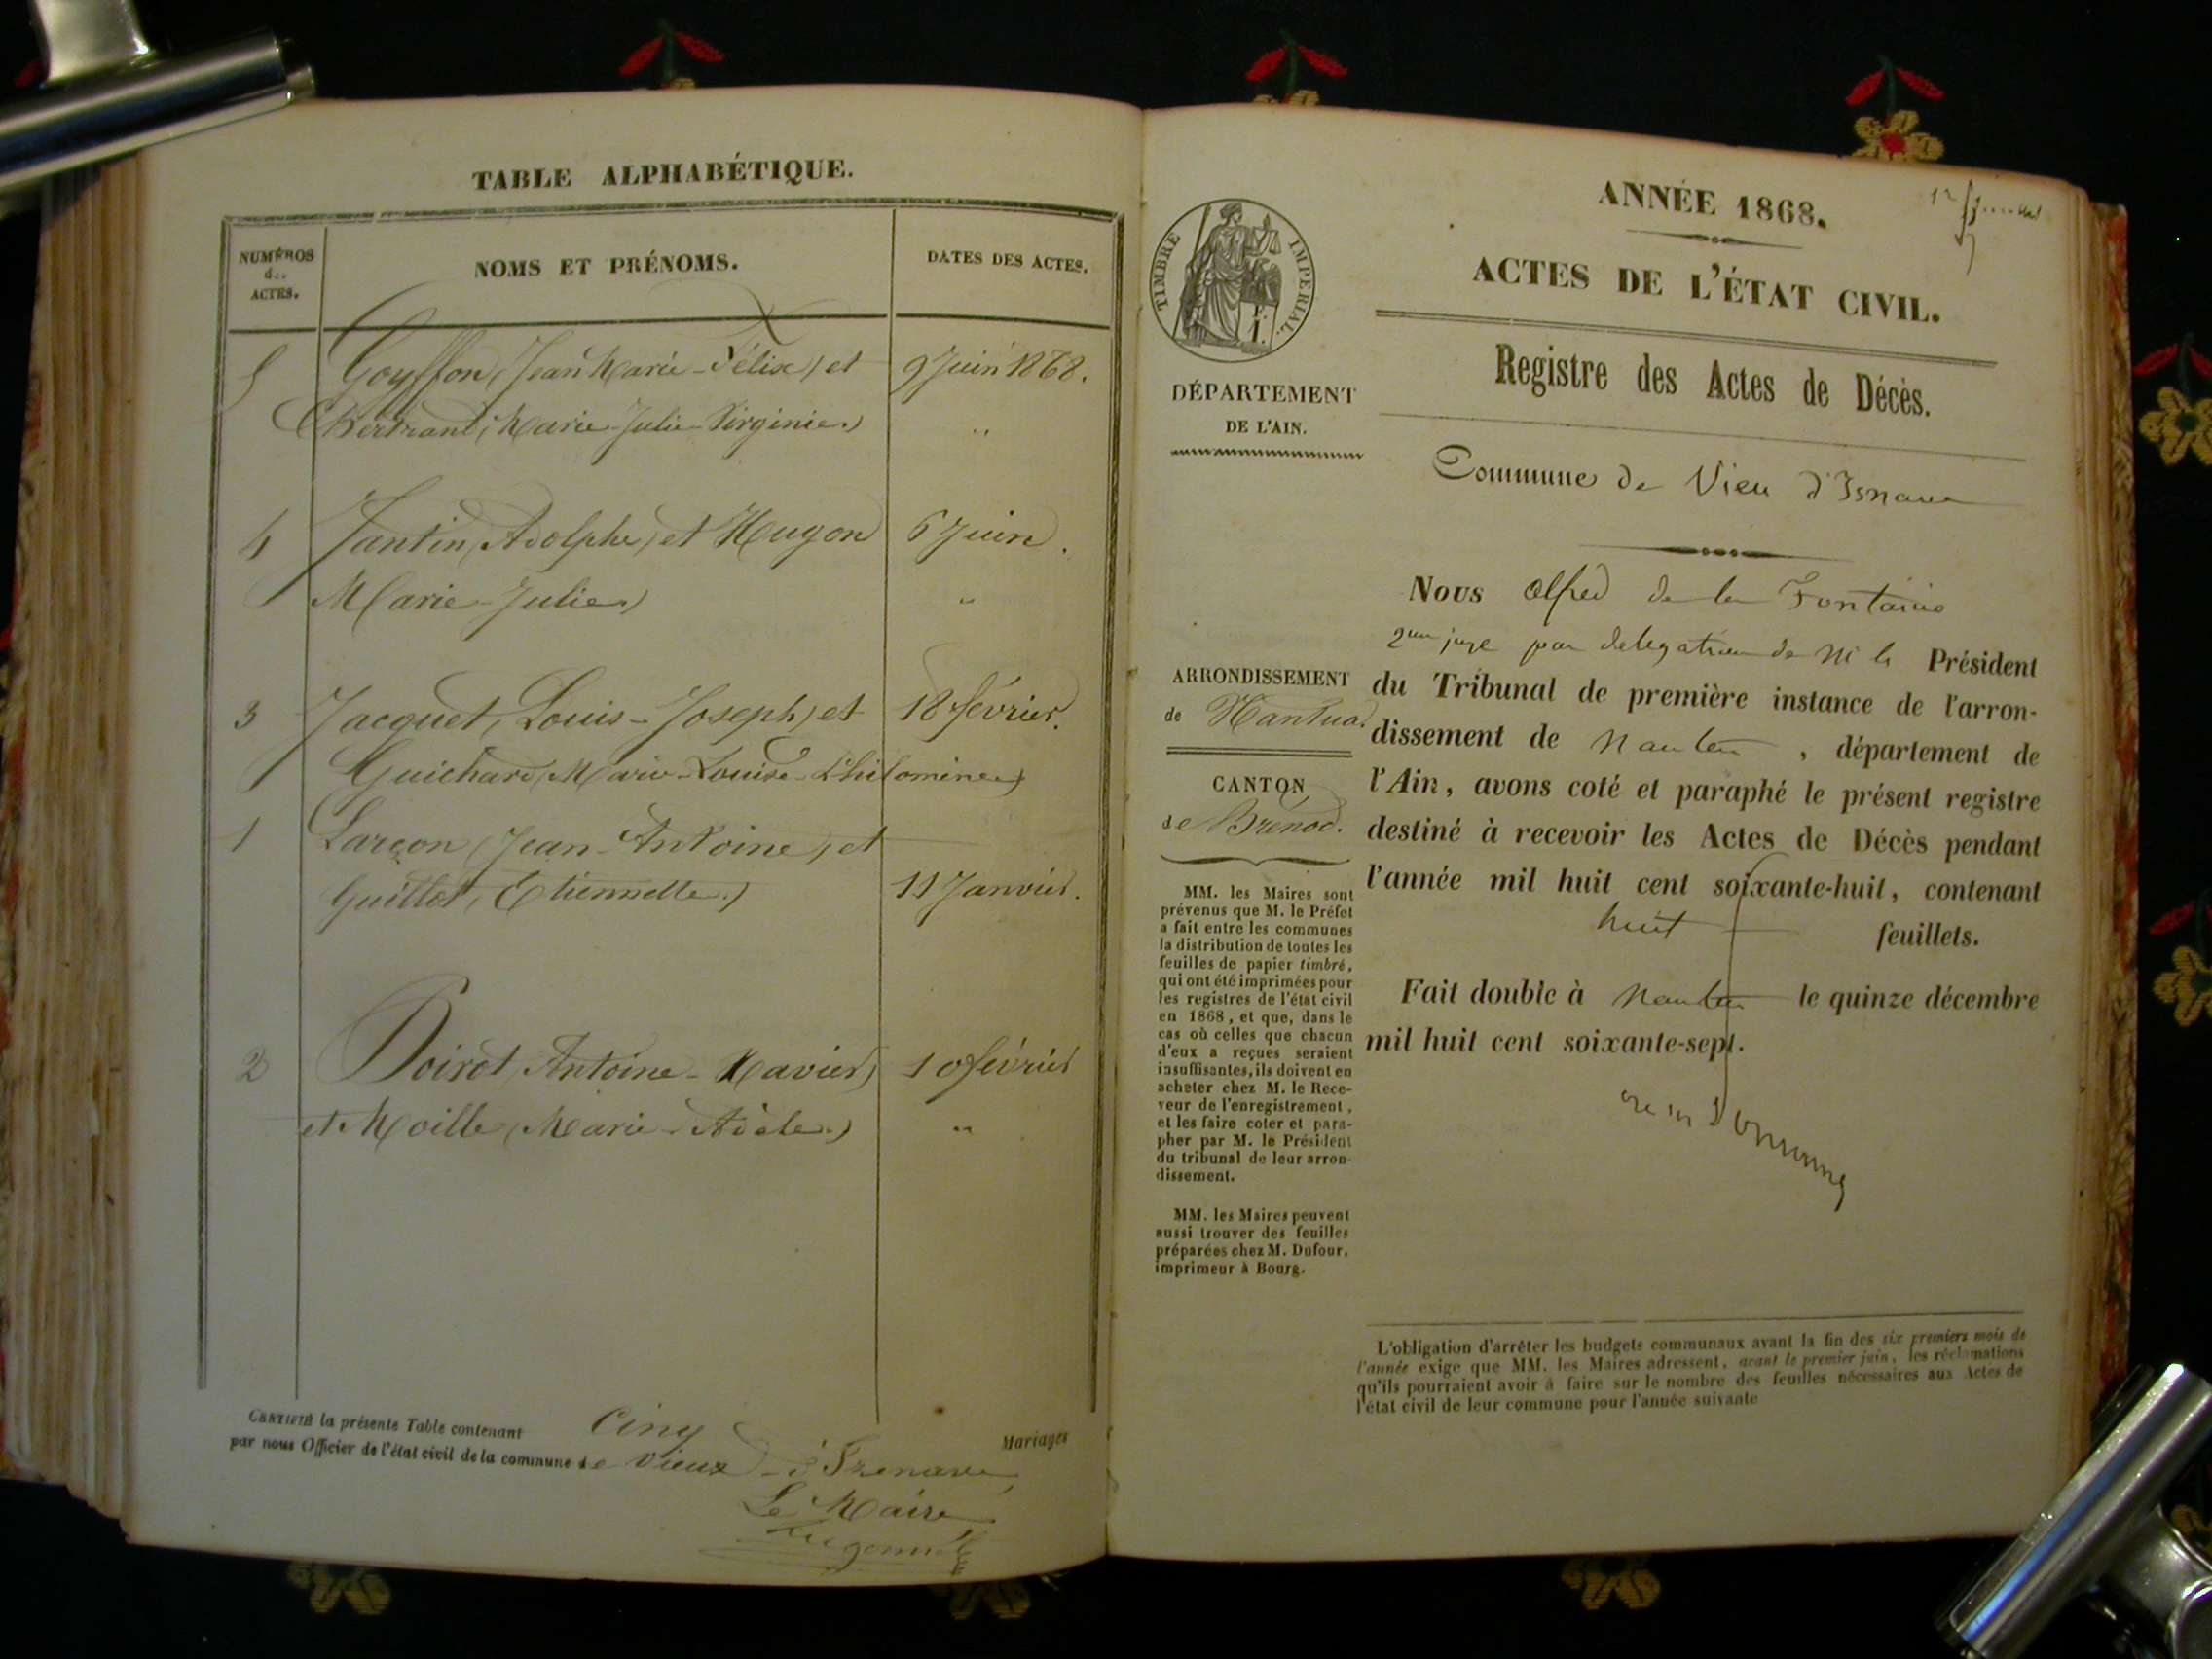 TABLE ALPHABÉTIQUE.
NUMÉROS
des
ACTES.
NOMS ET PRÉNOMS.
DATES DES ACTES.
5 Goyffon (Jean Marie-Félix) et 9 Juin 1868.
(Bertrand, Marie-Julie-Virginie.) "
4 Jantin, Adolphe, et Hugon 6 Juin.
Marie-Julie.) "
3 Jacquet, Louis-Joseph, et 18 février.
Guichard, Marie-Louise-Philomine.)
1 Larçon (Jean-Antoine, et
Guillot, Etiennette.) 11 Janvier.
2 Poirot, Antoine-Xavier) 10 février
et Moille (Marie-Adèle.) "
CERTIFIÉ la présente Table contenant Cinq Mariages
par nous Officier de l'état civil de la commune de Vieux-d'Izenave
Le Maire
ANNÉE 1868.
ACTES DE L'ÉTAT CIVIL.
TIMBRE IMPÉRIAL.
Registre des Actes de Décès.
DÉPARTEMENT
DE L'AIN.
Commune de Vieu d'Isnave
Nous Alfred de la Fontaine
2me juge par delegation de M le Président
du Tribunal de première instance de l'arron-
dissement de Nantua, département de
l'Ain, avons coté et paraphé le présent registre
destiné à recevoir les Actes de Décès pendant
l'année mil huit cent soixante-huit, contenant
huit feuillets.
Fait double à Nantua le quinze décembre
mil huit cent soixante-sept.
ARRONDISSEMENT
de Nantua.
CANTON
de Brénod.
MM. les Maires sont
prévenus que M. le Préfet
a fait entre les communes
la distribution de toutes les
feuilles de papier timbré,
qui ont été imprimées pour
les registres de l'état civil
en 1868, et que, dans le
cas où celles que chacun
d'eux a reçues seraient
insuffisantes, ils doivent en
acheter chez M. le Rece-
veur de l'enregistrement,
et les faire coter et para-
pher par M. le Président
du tribunal de leur arron-
dissement.
MM. les Maires peuvent
aussi trouver des feuilles
préparées chez M. Dufour,
imprimeur à Bourg.
L'obligation d'arrêter les budgets communaux avant la fin des six premiers mois de
l'année exige que MM. les Maires adressent, avant le premier juin, les réclamations
qu'ils pourraient avoir à faire sur le nombre des feuilles nécessaires aux Actes de
l'état civil de leur commune pour l'année suivante